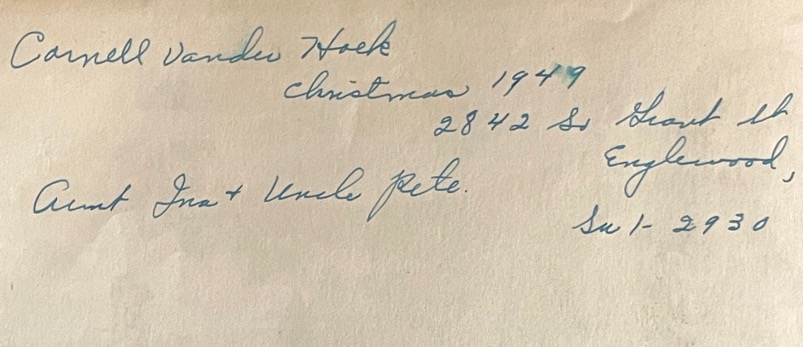 Cornell Vander Hoek
Christmas 1949
2842 So Grant St
Englewood,
Aunt Ina + Uncle Pete.
Su 1-2930